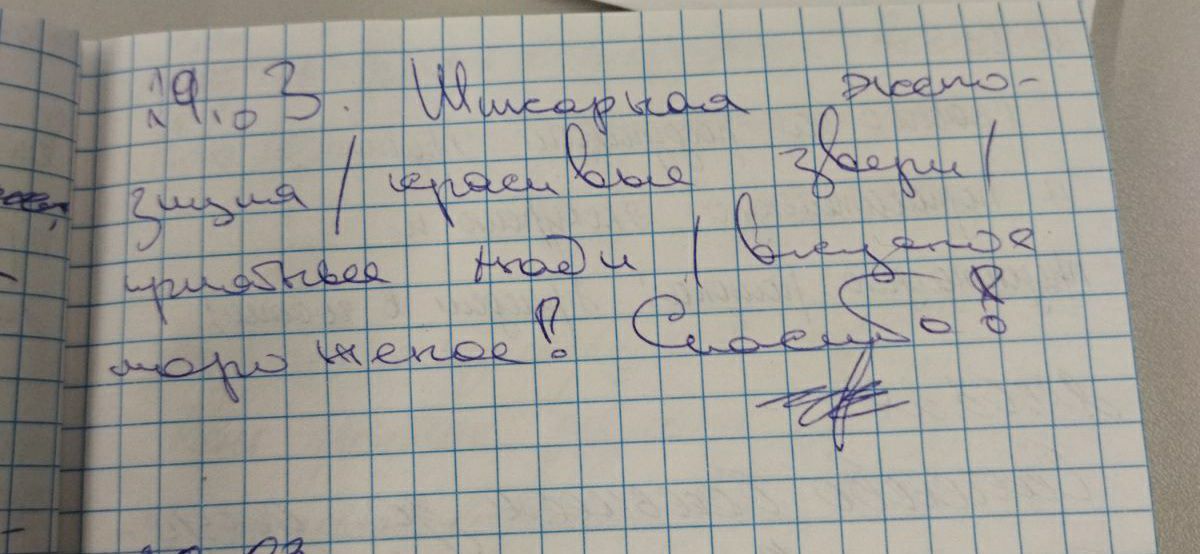 19.03. Шикарная экспо-
зиция / красивые звери /
приятные люди / вкусное
мороженое! Спасибо!